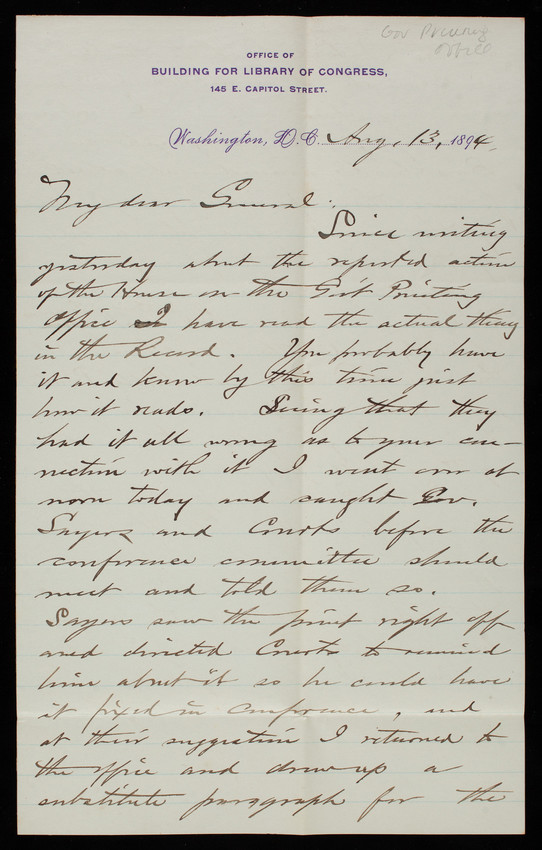 Gov Printing
Office
OFFICE OF
BUILDING FOR LIBRARY OF CONGRESS,
145 E. CAPITOL STREET.
Washington, D. C. Aug. 13, 1894.
My dear General:
Since writing
yesterday about the reported action
of the House on the G'v't Printing
Office I have read the actual thing
in the Record. You probably have
it and know by this time just
how it reads. Seeing that they
had it all wrong as to your con-
nection with it I went over at
noon today and caught Gov.
Sayers and Courts before the
conference committee should
meet and told them so.
Sayers saw the point right off
and directed Courts to remind
him about it so he could have
it fixed in conference, and
at their suggestion I returned to
the office and drew up a
substitute paragraph for the